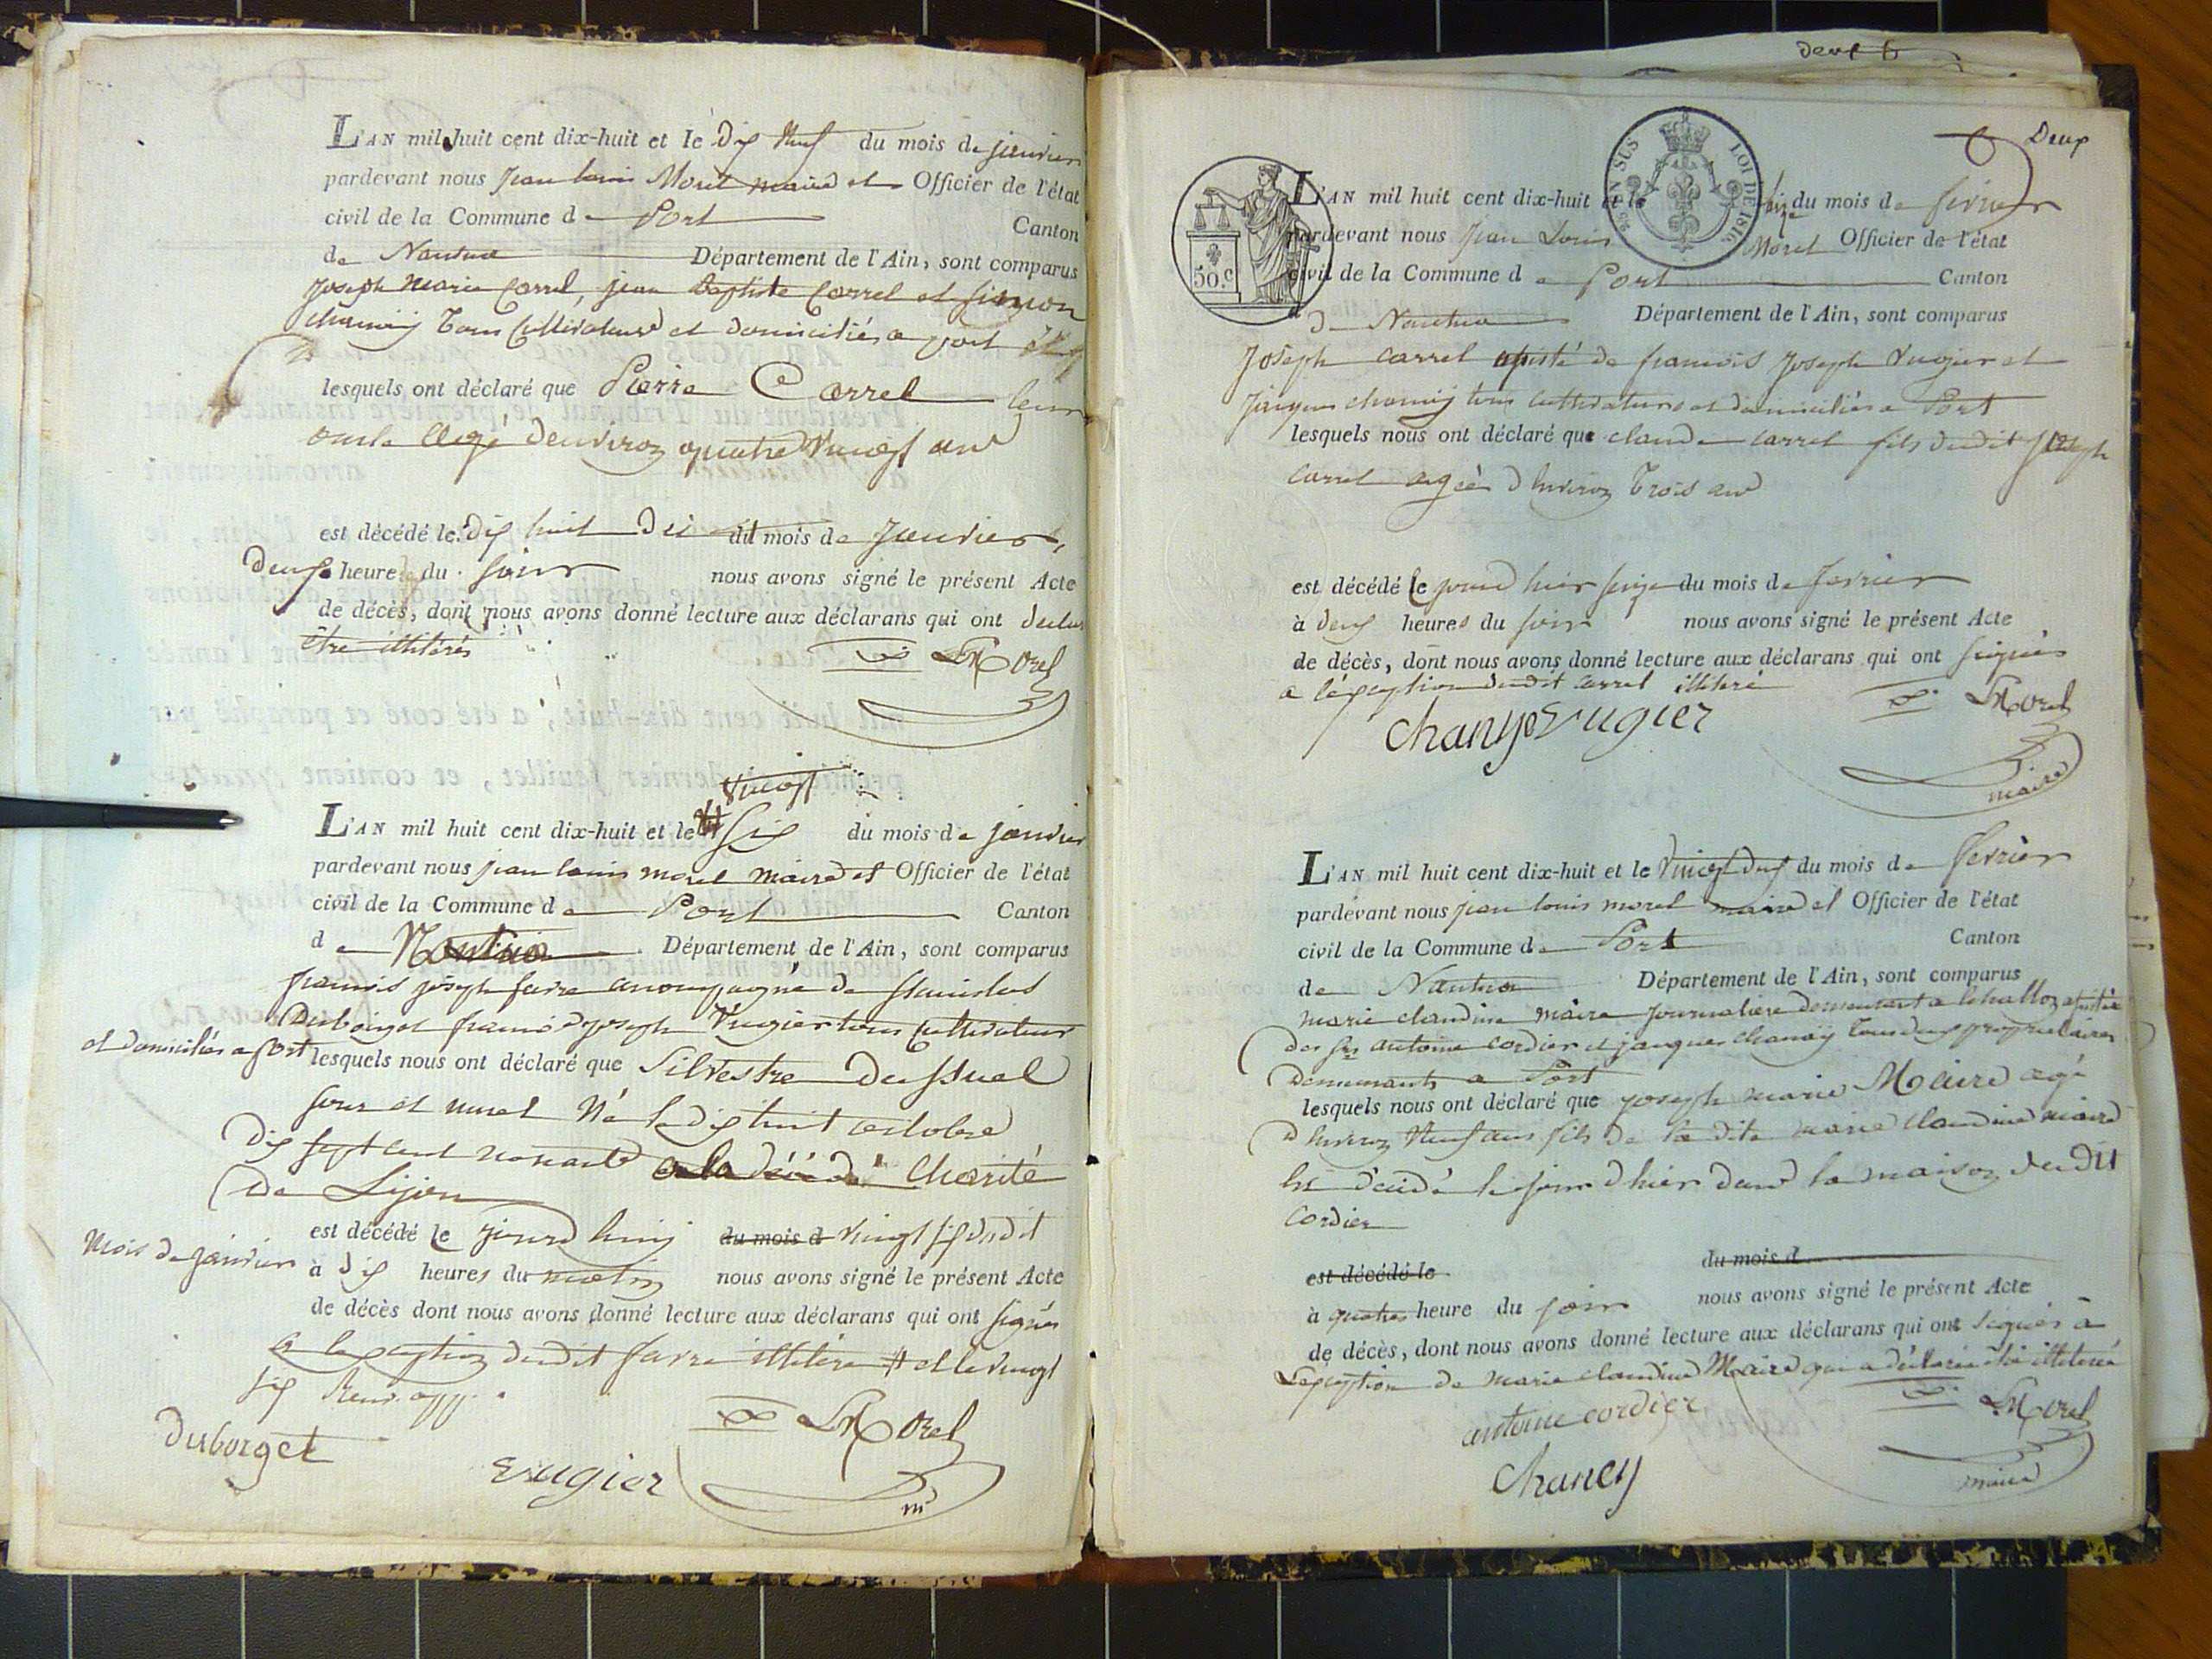 L'AN mil huit cent dix-huit et le dix Neuf du mois de janvier
pardevant nous jean louis Morel maire et Officier de l'état
civil de la Commune de Port Canton
de Nantua Département de l'Ain, sont comparus
joseph marie Carrel, jean Baptiste Carrel et simon
tous Cultivateurs et domiciliés a port
lesquels ont déclaré que Pierre Carrel leur
oncle agé denviron quatre Vingt ans
est décédé le dix huit du dit mois de janvier,
deux heure du soir nous avons signé le présent Acte
de décès, dont nous avons donné lecture aux déclarans qui ont
être illitérés LMorel
vingt
L'AN mil huit cent dix-huit et le six du mois de janvier
pardevant nous jean louis morel maire et Officier de l'état
civil de la Commune de Port Canton
de Nantua Département de l'Ain, sont comparus
francois joseph favre accompagné de Stanislas
Duborget francois joseph Vugier tous Cultivateurs
et domiciliés a port lesquels nous ont déclaré que Silvestre
sour et muet Né le dix huit octobre
dix sept cent nonante a la Charité
de Lijon
est décédé le jourd huij du mois d vingt six dudit
mois de janvier à dix heures du matin nous avons signé le présent Acte
de décès dont nous avons donné lecture aux déclarans qui ont signés
a lexception dudit favre illitéré # et le vingt
six
duborget LMorel
Vugier m
Deux
L'AN mil huit cent dix-huit et le du mois de fevrier
pardevant nous Jean Louis Morel Officier de l'état
civil de la Commune de Port Canton
de Nantua Département de l'Ain, sont comparus
50.c
EN SUS
LOI DE 1816
Joseph carrel de francois joseph Vugier et
jacques tous cultivateurs et domiciliés a Port
lesquels nous ont déclaré que claude carrel fils dudit joseph
carrel agée denviron trois ans
est décédé le jour d'hier seize du mois de fevrier
à deux heures du soir nous avons signé le présent Acte
de décès, dont nous avons donné lecture aux déclarans qui ont signés
a léxception dudit carrel illitéré LMorel
Chanye Vugier
maire
L'AN mil huit cent dix-huit et le vingt deux du mois de fevrier
pardevant nous jean louis morel maire et Officier de l'état
civil de la Commune de Port Canton
de Nantua Département de l'Ain, sont comparus
marie claudine maire journaliere demeurant a
des srs antoine cordier et jacques tous deux proprietaires
demeurants a Port
lesquels nous ont déclaré que joseph marie Maire agé
d'environ Neuf ans fils de la dite marie claudine maire
est décédé le jour d'hier dans la maison dudit
cordier
est décédé le du mois d
à quatres heure du soir nous avons signé le présent Acte
de décès, dont nous avons donné lecture aux déclarans qui ont signés a
Lexception de marie claudine Maire qui a déclaré être illiterée
antoine cordier LMorel
Chaney maire